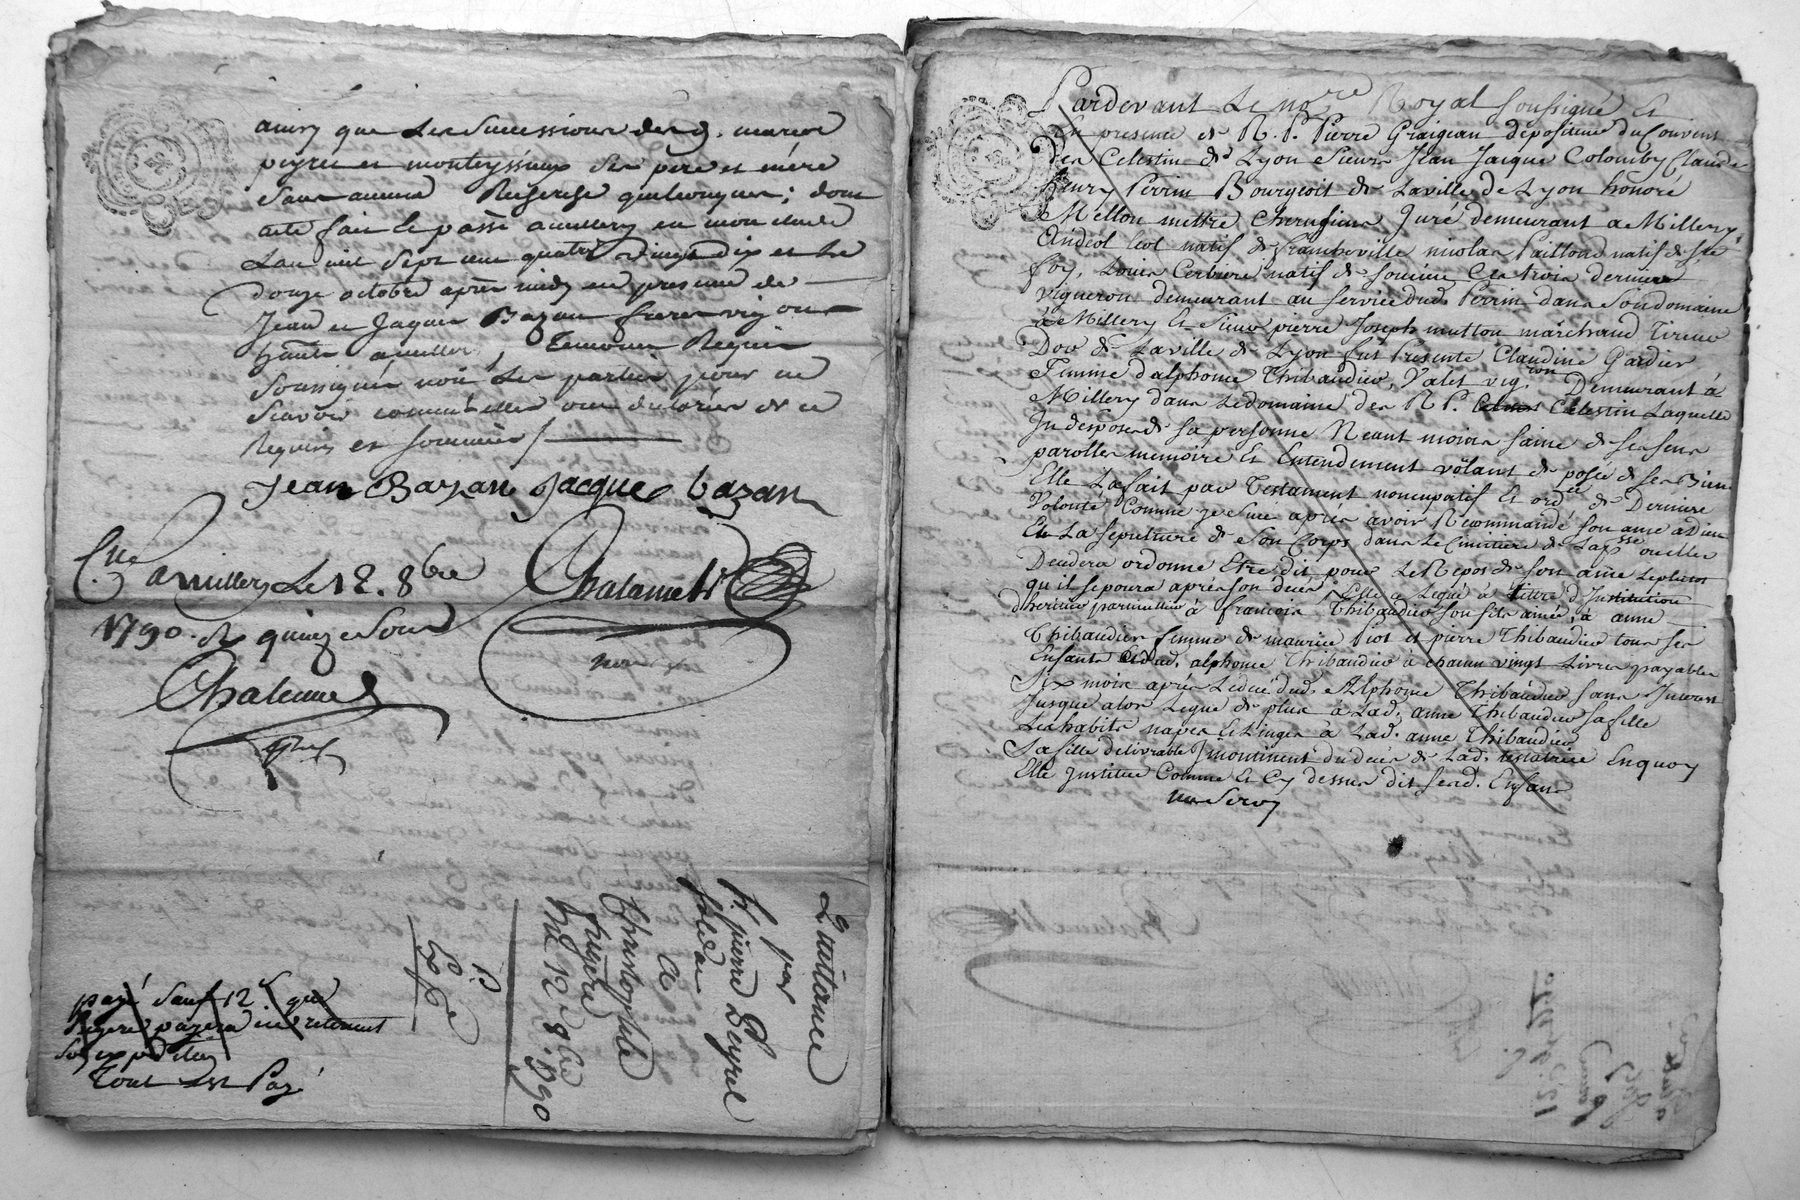 ainsy que Les Successions desd. maries
peyret et monteyssieux Ses pere et mère
Sans aucune Reserve quelconque; dont
acte fait et passé a millery en mon etude
Lan mil Sept cent quatre vingt dix et Le
douze octobre après midy en presence de
Jean et Jaques Bazan freres vignerons
habts a millery, Temoins Requis
Soussignés non Les parties pour ne
Scavoir comm' elles ont declarés de ce
Requises et sommées /
Jean Bazan Jacque bazan
Chalamel
Cllé a millery Le 12. 8bre
1790. R quinze Sous
Chalamel
payé Sauf 12s que
payera en retirant
Son expedition
Tout Est Payé
Quittance
par
Sr. pierre Peyret
Soldat
a
Christophle
frugere
Du 12 8bre 1790
Pardevant Le nore Royal Soussigné Et
En presence de R. P. Pierre Graigean depositaire du Couvent
des Celestin de Lyon Sieurs Jean Jacque Colomby Claude
henry Perrin Bourgeois de La ville de Lyon honoré
Mellon mettre Chirugien Juré demeurant a Millery,
Andéol Col natif de francheville nicolas Paillord natif de ste
foy, Louis Cerbiere natif de Soucieu Ces trois derniers
vignerons demeurant au Service dud. Perrin dans Son domaine
à Millery Et Sieur pierre Joseph mutton marchand Tireur
Dor de La ville de Lyon fut Presente Claudine Gardier
Femme d'alphonse Thibaudier, Valet vigron Demeurant à
Millery dans Le domaine des R P. Celestin Laquelle
Indisposée de sa personne Neant moins saine de ses sens
parolles memoire Et Entendement voulant disposé de ses Biens
Elle La fait par Testament noncupatif Et ordce de Derniere
Volonté Comme je Suit après avoir Recommandé son ame a Dieu
Et La sepulture de Son Corps dans Le Cimittiere de La psse ou elle
Decedera ordonne Etre dit pour Le Repos de son ame Le plutot
qu'il se poura après son décés Elle a Legué à titre d'Institution
d'heritier particullier à françois Thibaudier son fils ainée, à anne
Thibaudier femme de maurice Piot et pierre Thibaudier tous ses
Enfants dud. alphonse Thibaudier à chacun vingt Livres payables
Six mois après Le decé dud. Alphonse Thibaudier Sans Interest
Jusque alors Legue de plus à Lad. anne Thibaudier sa fille
Les habits napes Et Linges à Lad. anne Thibaudier
Sa fille delivrable Incontinent du decès de Lad. testatrice En quoy
Elle Institue Comme Et Cy dessus dit sesd. Enfans